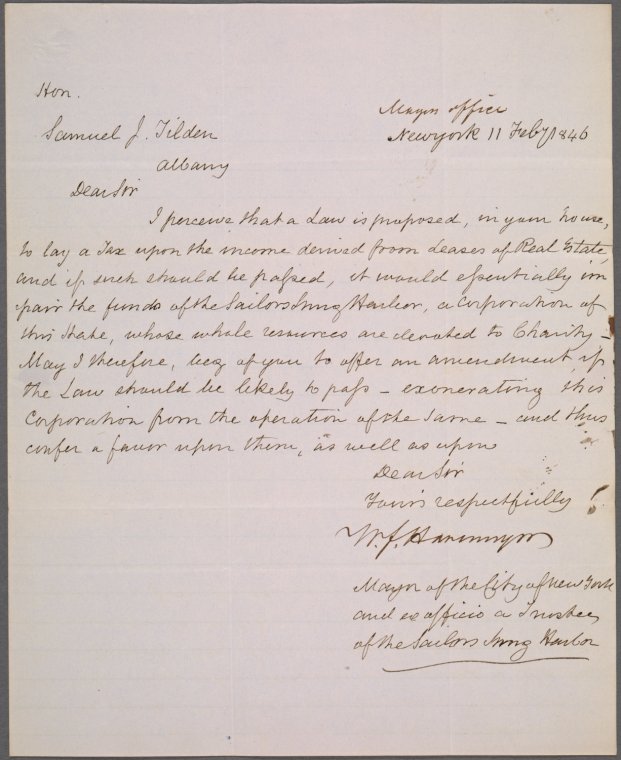 Hon.
Mayors office
Newyork 11 Feby 1846
Samuel J. Tilden
Albany
Dear Sir
I perceive that a Law is proposed, in your house,
to lay a Tax upon the income derived from Leases of Real Estate,
and if such should be passed, it would essentially im
pair the funds of the Sailors Snug Harbor, a Corporation of
this State, whose whole resources are devoted to Charity –
May I therefore, beg of you to offer an amendment, if
the Law should be likely to pass – exonerating this
Corporation from the operation of the Same – and thus
confer a favor upon them, as well as upon
Dear Sir
Yours respectfully
W. F. Havemeyer
Mayor of the City of New York
and ex officio a Trustee
of the Sailors Snug Harbor